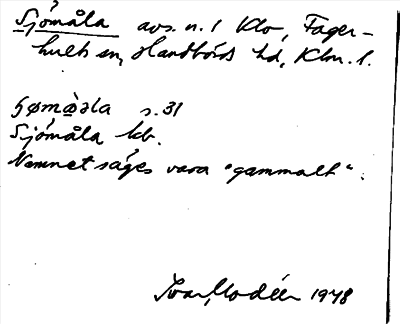 Sjömåla avs. n. 1 Klo, Fager-
hults sn, Handbörds hd, Klm. l.
ʂømò̠əla s. 31
Sjömåla kb.
Namnet säges vara "gammalt".
Ivar Modéer 1948